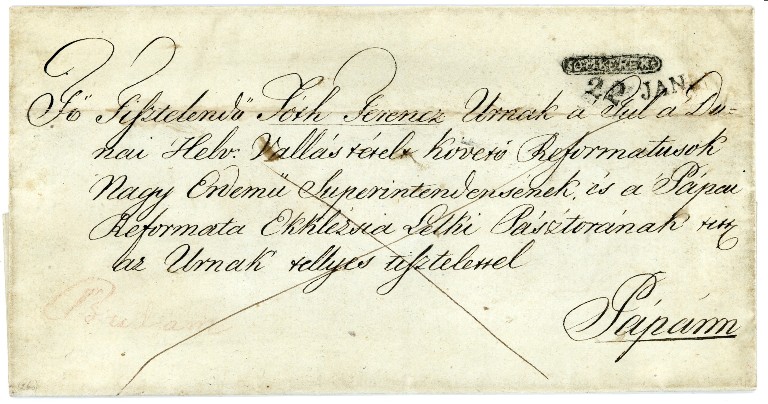 22 JAN.
Fő Tisztelendő Tóth Ferencz Urnak a Túl a Du-
nai Helv. Vallás tételt Követő Reformatusok
Nagy Érdemű Superintendensének, és a Pápai
Reformata Ekklézsia Lelki Pásztorának
az Urnak tellyes tisztelettel
Pápánn